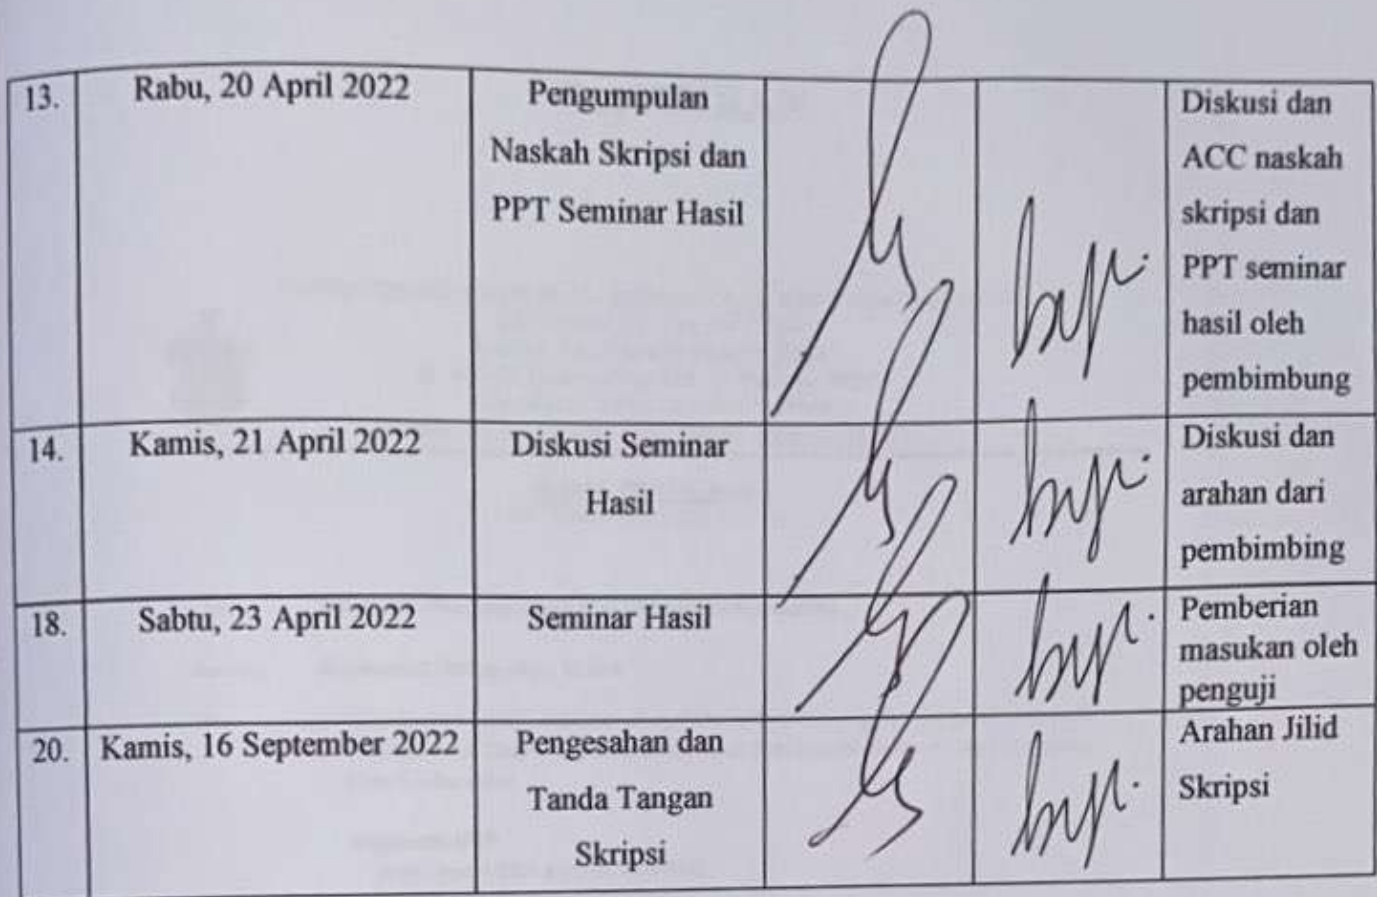 13.
Rabu, 20 April 2022
Pengumpulan
Naskah Skripsi dan
PPT Seminar Hasil
Diskusi dan
ACC naskah
skripsi dan
PPT seminar
hasil oleh
pembimbung
14.
Kamis, 21 April 2022
Diskusi Seminar
Hasil
Diskusi dan
arahan dari
pembimbing
18.
Sabtu, 23 April 2022
Seminar Hasil
Pemberian
masukan oleh
penguji
20.
Kamis, 16 September 2022
Pengesahan dan
Tanda Tangan
Skripsi
Arahan Jilid
Skripsi